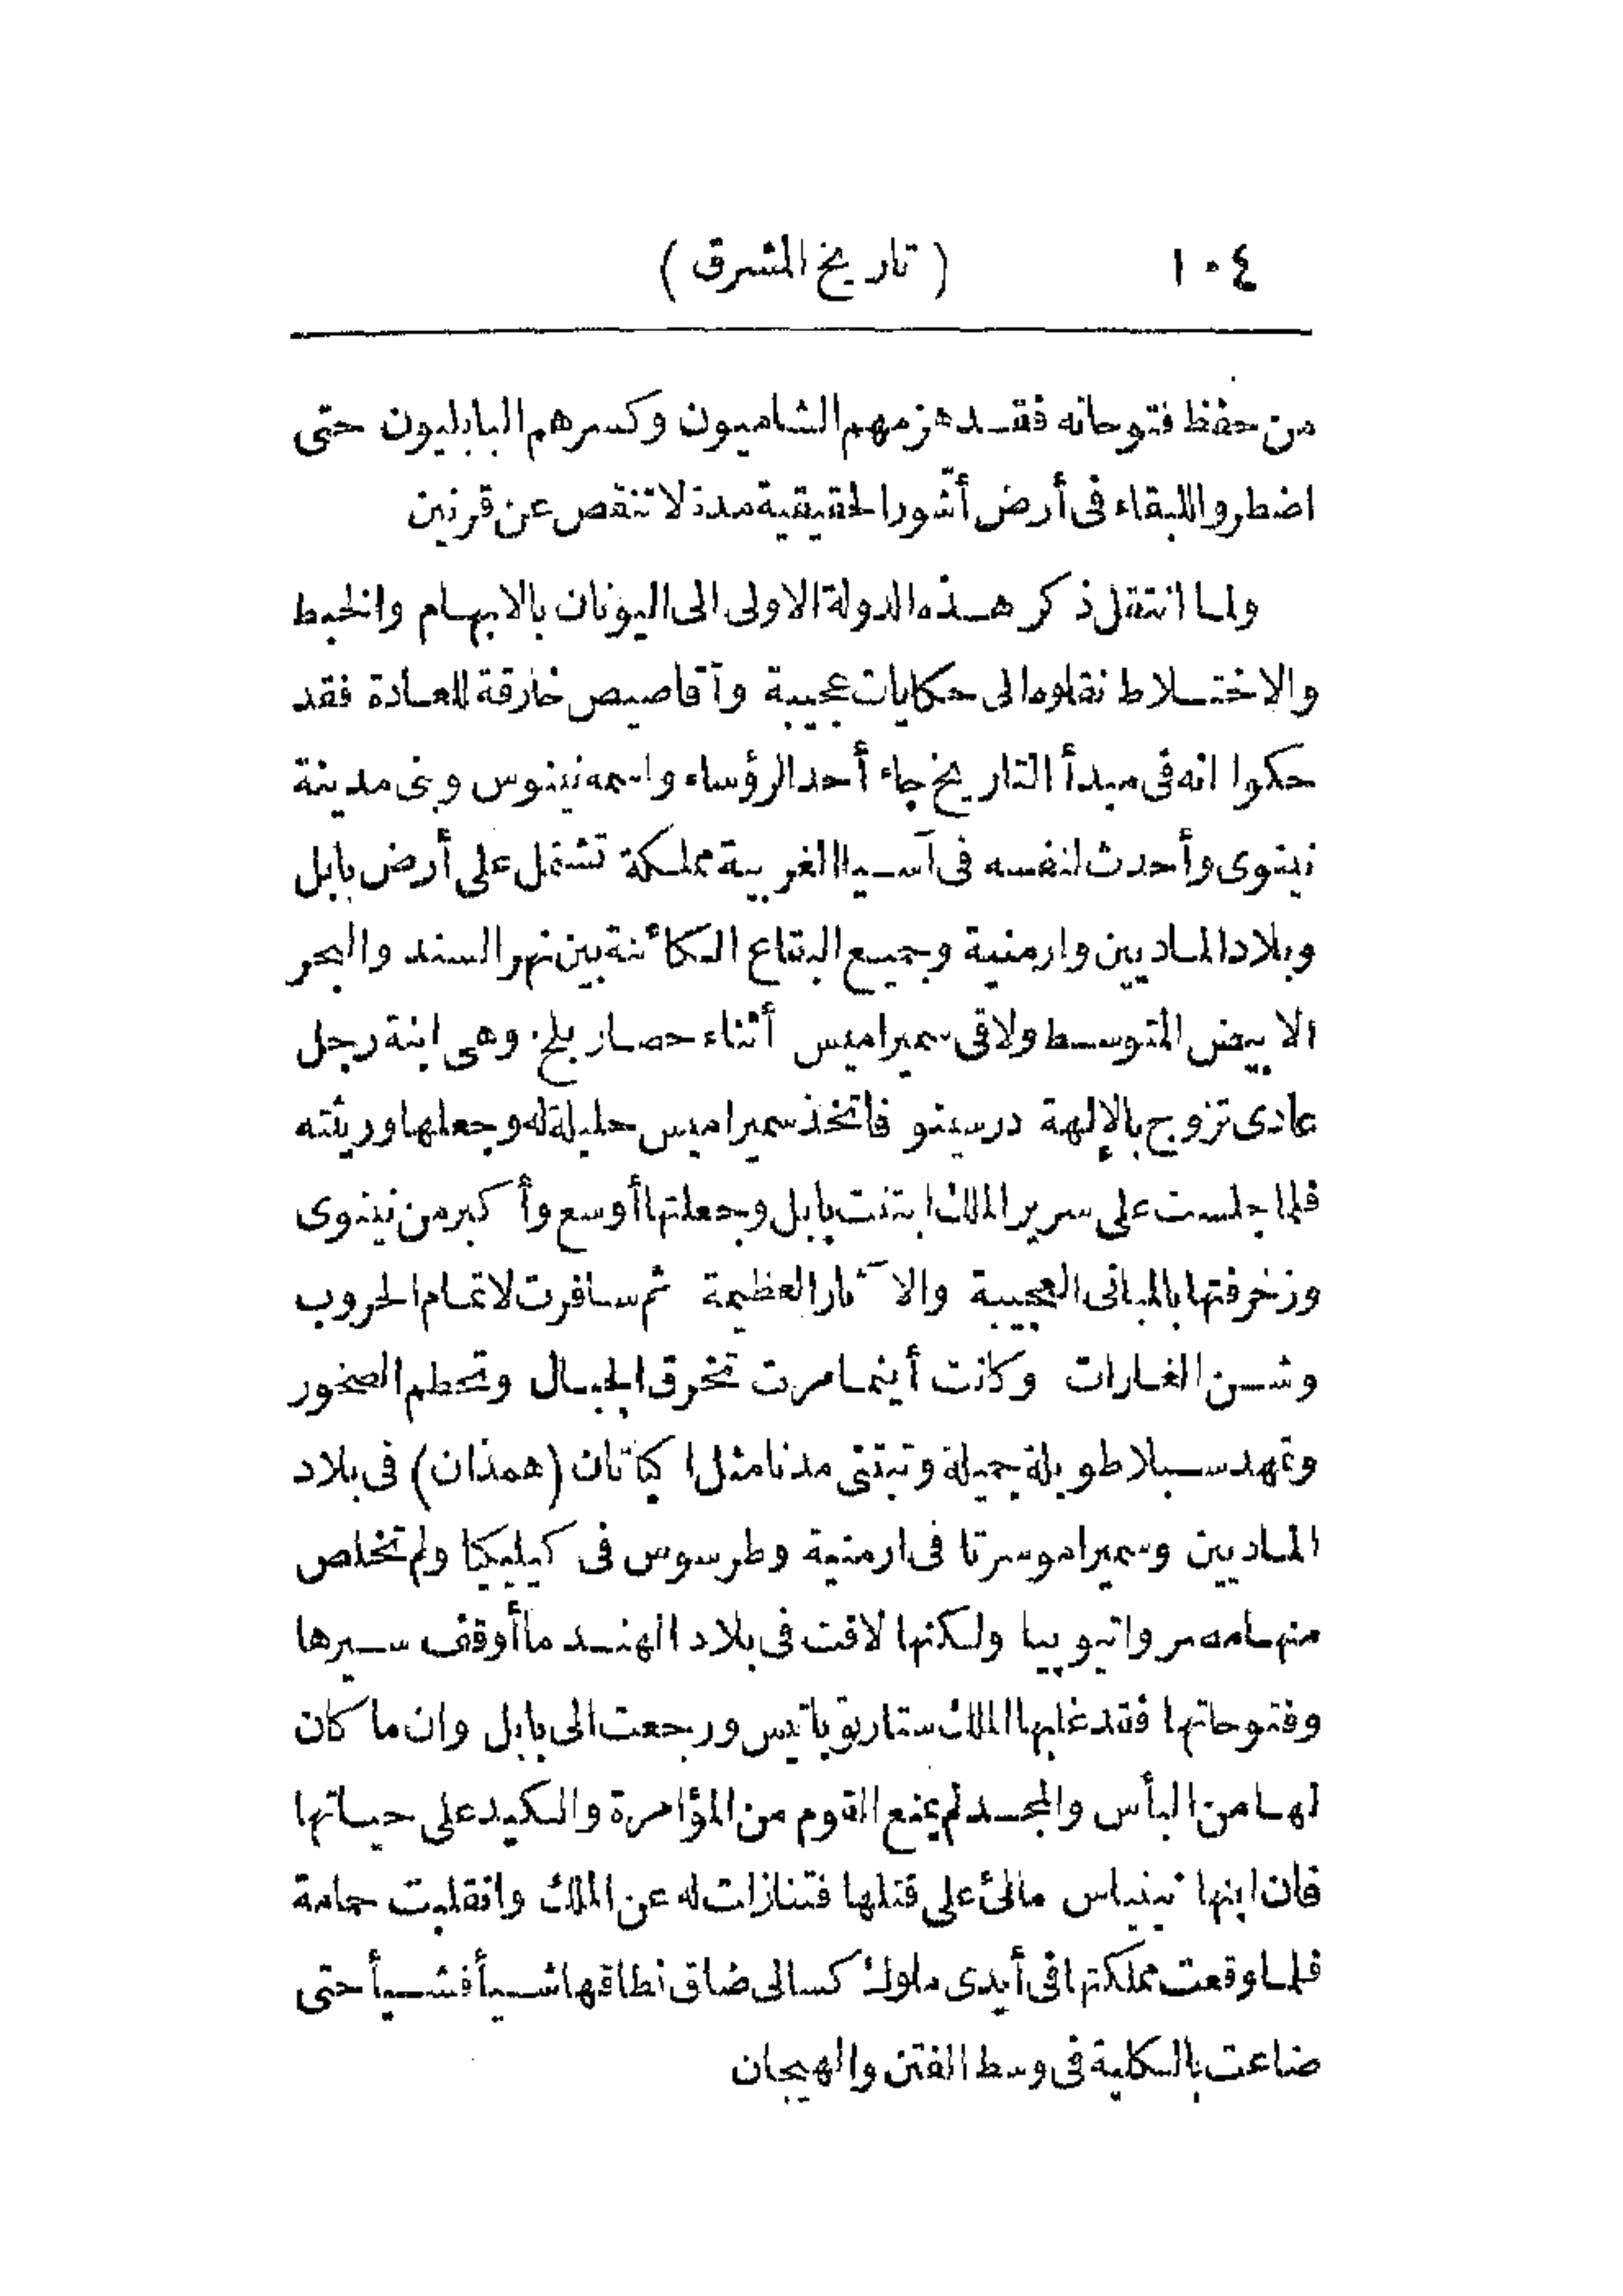 ١٠٤ (تاريخ المشرق)
من حفظ فتوحاته فقد هزمهم الشاميون وكسرهم البابليون حتى
اضطروا للبقاء فى أرض أشور الحقيقية مدة لا تنقص عن قرنين
ولما انتقل ذكر هذه الدولة الاولى الى اليونان بالابهام والخبط
والاختلاط نقلوها الى حكايات عجيبة وأقاصيص خارقة للعادة فقد
حكوا انه فى مبدأ التاريخ جاء أحد الرؤساء واسمه نينوس وبنى مدينة
نينوى وأحدث لنفسه فى آسيا الغربية مملكة تشتمل على أرض بابل
وبلاد الماديين وارمنية وجميع البقاع الكائنة بين نهر السند والبحر
الابيض المتوسط ولاقى سميراميس أثناء حصار بلخ وهى ابنة رجل
عادى تزوج بالإلهة درسيتو فاتخذ سميراميس حليلة له وجعلها وريثته
فلما جلست على سرير الملك ابتنت بابل وجعلتها أوسع وأكبر من نينوى
وزخرفتها بالمبانى العجيبة والآثار العظيمة ثم سافرت لاتمام الحروب
وشن الغارات وكانت أينما مرت تخرق الجبال وتحطم الصخور
وتمهد سبلا طويلة جميلة وتبتنى مدنا مثل اكباتان (همذان) فى بلاد
الماديين وسميراموسرتا فى ارمنية وطرسوس فى كيليكيا ولم تخلص
منها مصر واتيوبيا ولكنها لاقت فى بلاد الهند ما أوقف سيرها
وفتوحاتها فقد غلبها الملك ستاربوباتيس ورجعت الى بابل وان ما كان
لها من البأس والمجد لم يمنع القوم من المؤامرة والكيد على حياتها
فان ابنها نينياس مالئ على قتلها فتنازلت له عن الملك وانقلبت حمامة
فلما وقعت مملكتها فى أيدى ملوك كسالى ضاق نطاقها شيأ فشيأ حتى
ضاعت بالكلية فى وسط الفتن والهيجان